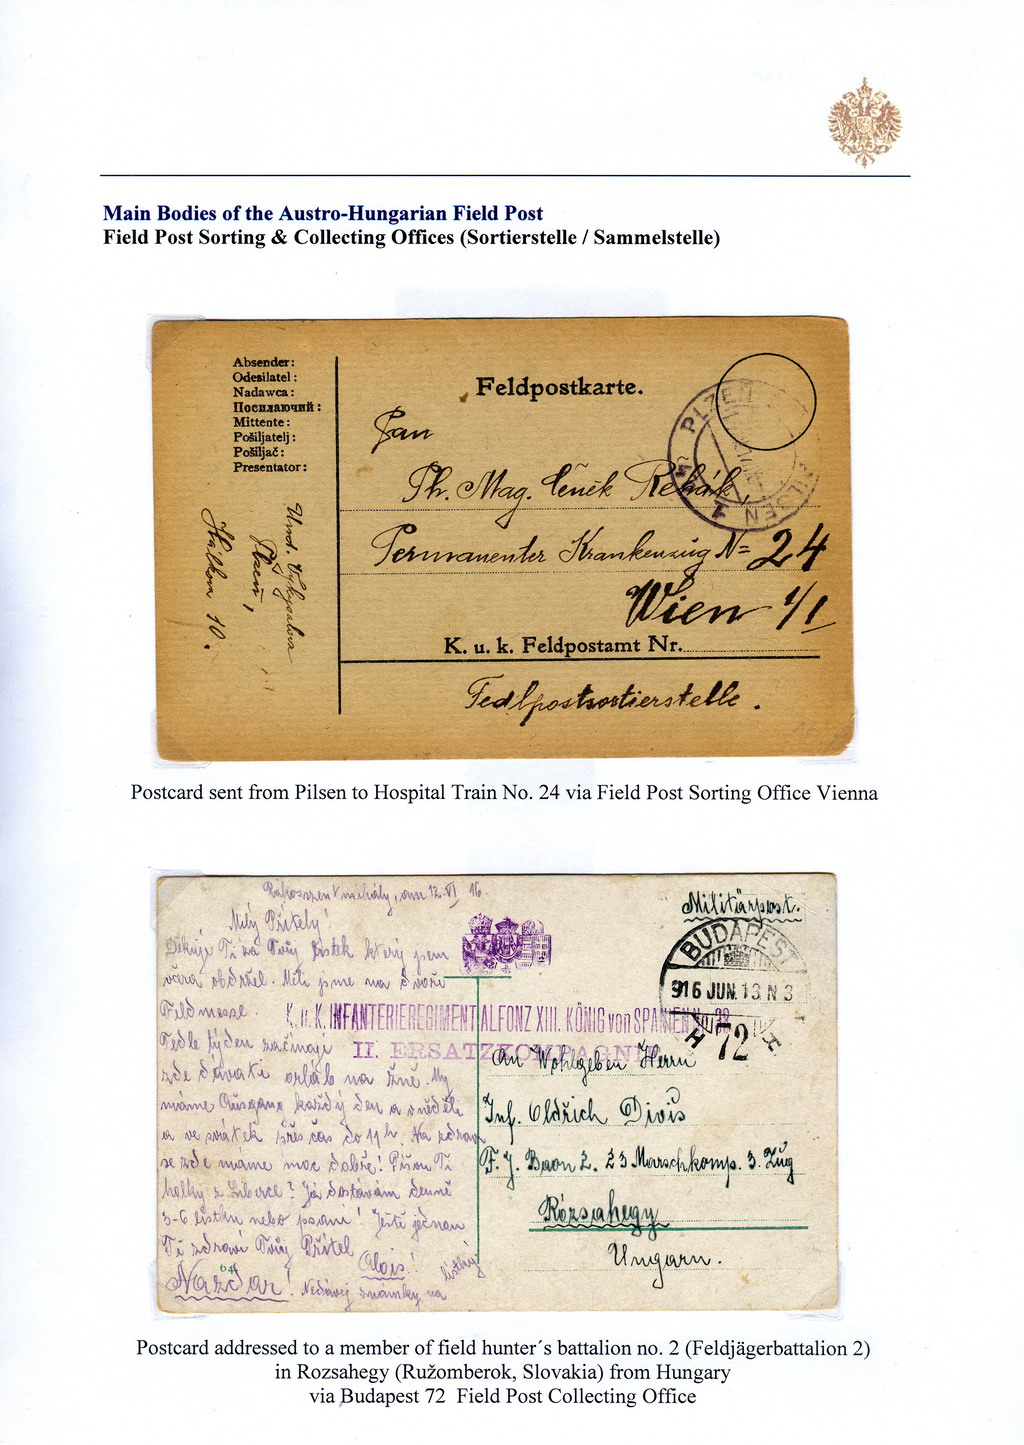 Main Bodies of the Austro-Hungarian Field Post
Field Post Sorting & Collecting Offices (Sortierstelle / Sammelstelle)
Absender:
Odesilatel:
Nadawca:
Посилаючий:
Mittente:
Pošiljatelj:
Pošiljač:
Presentator:
Plzeň,
Hálkova 10.
Feldpostkarte.
PLZEŇ 1 PILSEN 1
Pan
Ph. Mag. Čeněk Rehák,
Permanenter Krankenzug N= 24
Wien 1/1
K. u. k. Feldpostamt Nr.
Fedlpostsortierstelle.
Postcard sent from Pilsen to Hospital Train No. 24 via Field Post Sorting Office Vienna
Rákosszentmihály, am 12. VI 16.
Milý Příteli!
Děkuji Ti za Tvůj lístek který jsem
včera obdržel. Měli jsme na dvoře
Feldmesse.
zde dávati orláb na žně. My
máme Ausgang každý den a v neděli
a ve svátek přes čas do 11 h. Na zdraví
se zde máme moc dobře! Píšou Ti
holky z Liberce? Já dostávám denně
3-6 lístků nebo psaní! Ještě jednou
Tě zdraví Tvůj Přítel
Alois!
Nazdar!
64
K. u. K. INFANTERIEREGIMENT ALFONZ XIII. KÖNIG von SPANIEN No. 38
II. ERSATZKOMPAGNIE
Militärpost.
BUDAPEST
916 JUN. 13 N 3
72
An Wohlgeben Herrn
Inf. Oldřich Diviš
F. J. Baon 2. 23 Marschkomp. 3. Zug
Rózsahegy
Ungarn.
Postcard addressed to a member of field hunter´s battalion no. 2 (Feldjägerbattalion 2)
in Rozsahegy (Ružomberok, Slovakia) from Hungary
via Budapest 72 Field Post Collecting Office